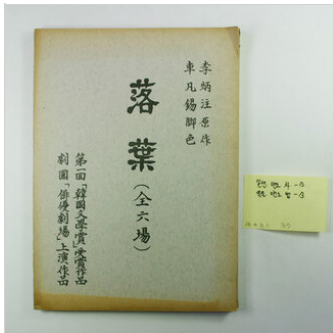 李炳注原作
車凡錫脚色
落葉(全六場)
第一回「韓国文學賞」受賞作品
劇團「俳優劇場」上演作品